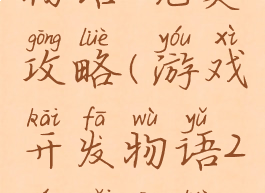 gōng lüè yóu xì
攻略(游戏
kāi fā wù yǔ
开发物语2